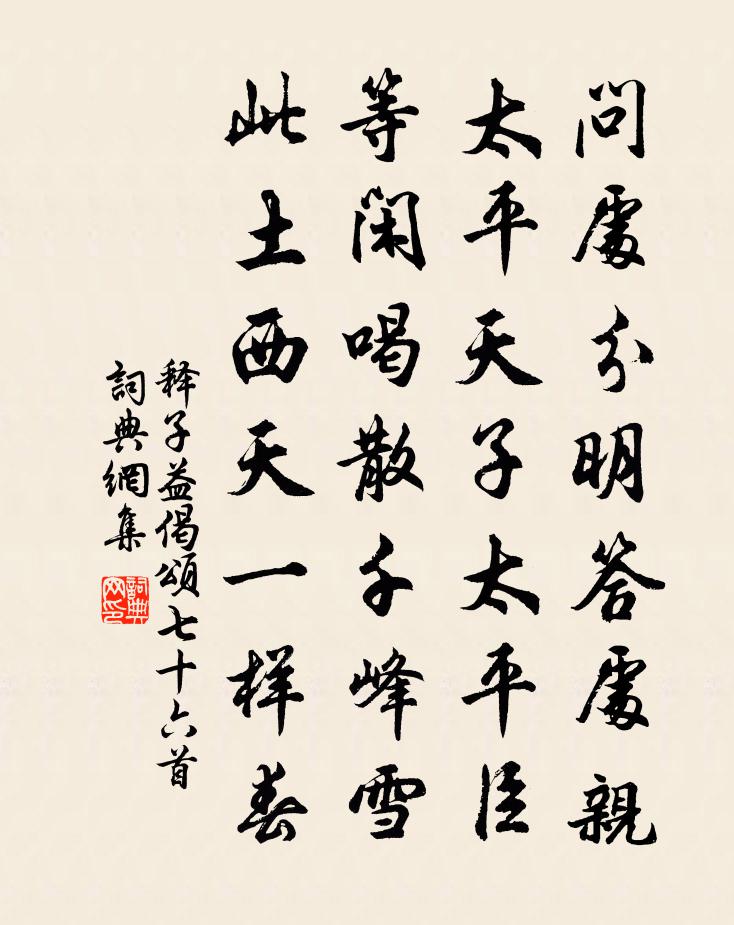 問處分明答處親
太平天子太平臣
等閑喝散千峰雪
此土西天一样春
释子益偈頌七十六首
詞典網集
詞典網印